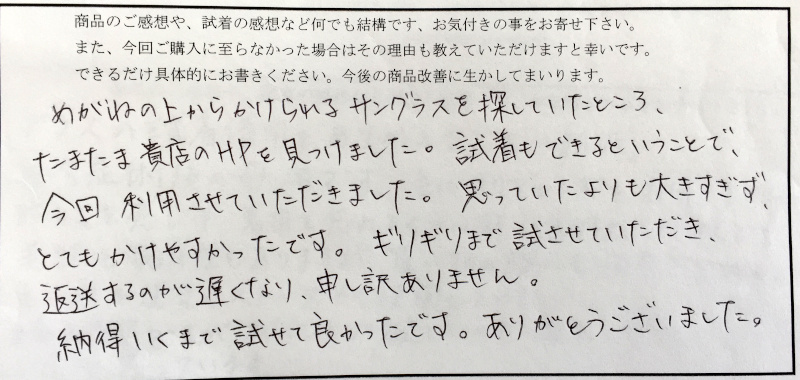 商品のご感想や、試着の感想など何でも結構です、お気付きの事をお寄せ下さい。
また、今回ご購入に至らなかった場合はその理由も教えていただけますと幸いです。
できるだけ具体的にお書きください。今後の商品改善に生かしてまいります。
めがねの上からかけられるサングラスを探していたところ、
たまたま貴店のHPを見つけました。試着もできるということで、
今回利用させていただきました。思っていたよりも大きすぎず、
とてもかけやすかったです。ギリギリまで試させていただき、
返送するのが遅くなり、申し訳ありません。
納得いくまで試せて良かったです。ありがとうございました。